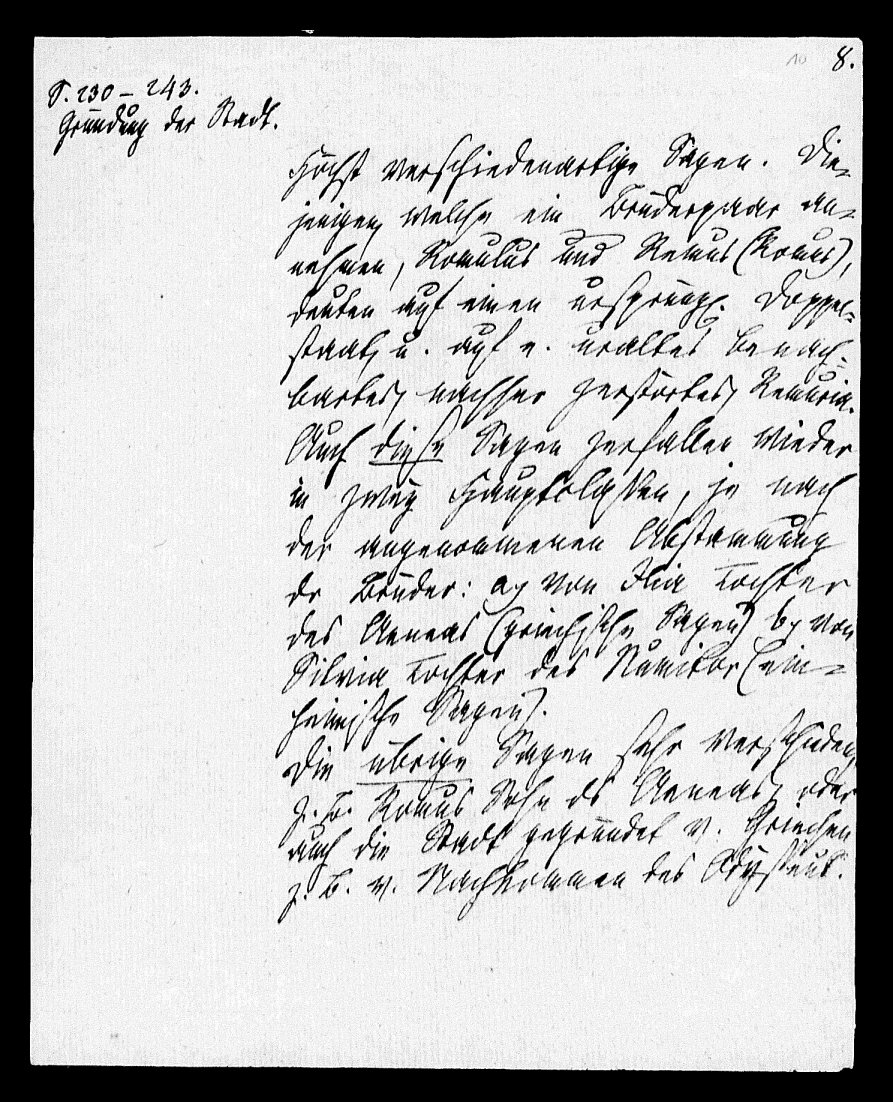 10 8.
S. 230 – 243.
Gründung der Stadt.
Höchst verschiedenartige Sagen. Die-
jenigen, welche ein Brüderpaar an-
nehmen, Romulus und Remus (Romus),
deuten auf einen ursprüngl. Doppel-
staat, u. auf e. uraltes benach-
bartes, nachher zerstörtes, Remuria.
Auch diese Sagen zerfallen wieder
in zwey Hauptclassen, je nach
der angenommenen Abstammung
dr Brüder: a) von Ilia Tochter
des Aeneas (griechische Sagen) b) von
Silvia Tochter des Numitor (ein-
heimische Sagen).
Die übrige Sagen sehr verschieden,
z. B. Romus Sohn ds Aeneas, oder
auch die Stadt gegründet v. Griechen
z. B. v. Nachkommen des Odysseus.